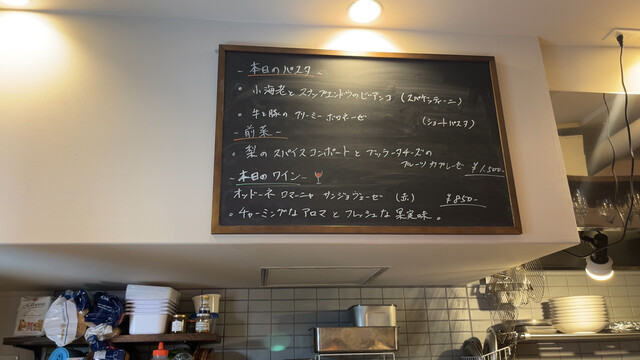 - 本日のパスタ -
• 小海老とスナップエンドウのビアンコ (スパゲッティーニ)
• 牛と豚のクリーミーボロネーゼ (ショートパスタ)
- 前菜 -
• 梨のスパイスコンポートとブッラータチーズの
フルーツカプレーゼ ¥1,500-
- 本日のワイン -
オッドーネ ロマーニャ サンジョヴェーゼ (赤) ¥850-
• チャーミングなアロマとフレッシュな果実味。